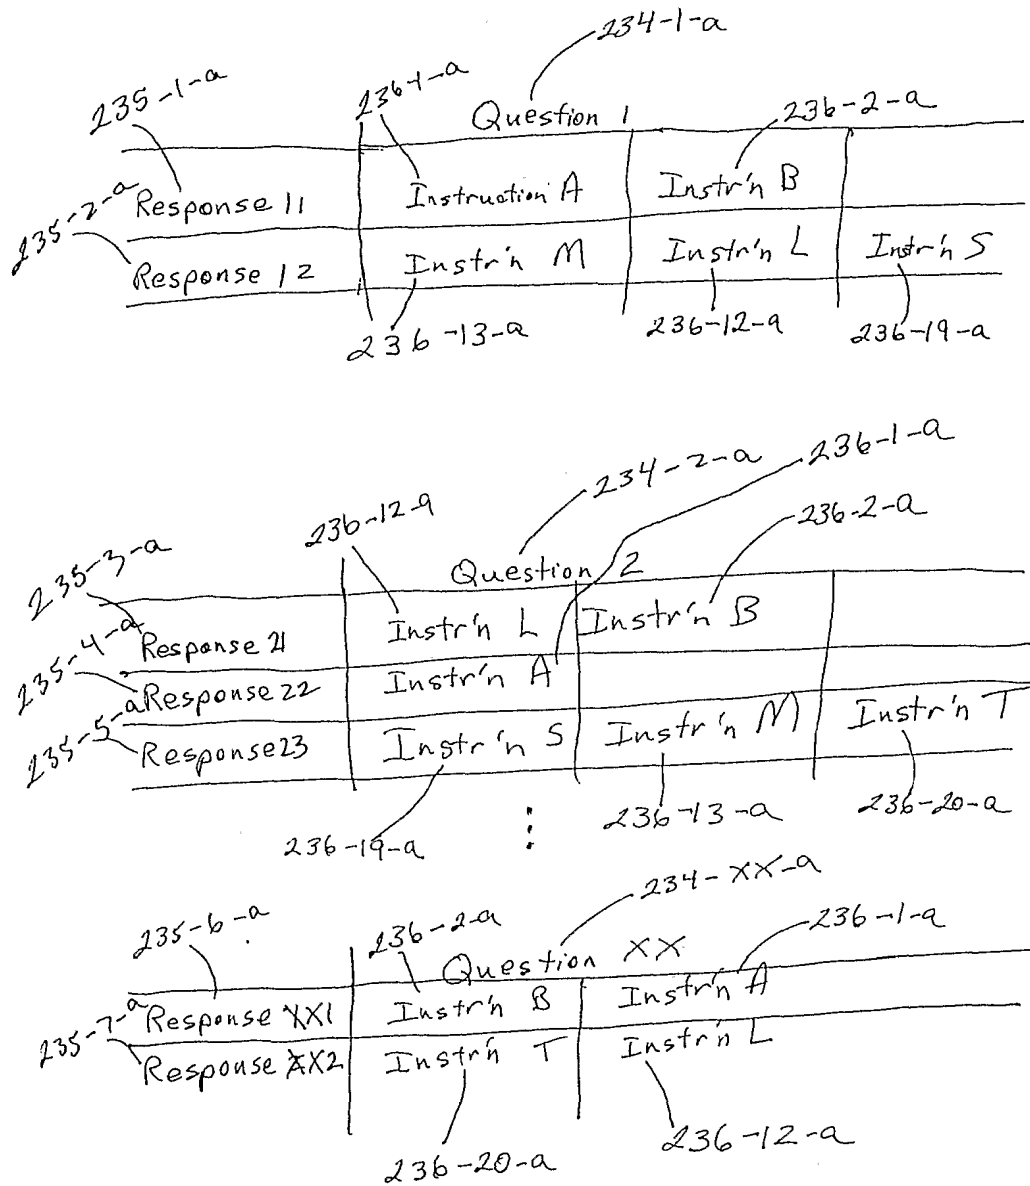 234-1-a
235-1-a 236-1-a 236-2-a
Question 1
235-2-a Response 11 Instruction A Instr'n B
Response 12 Instr'n M Instr'n L Instr'n S
236-13-a 236-12-a 236-19-a
234-2-a 236-1-a
236-12-a 236-2-a
235-3-a Question 2
235-4-a Response 21 Instr'n L Instr'n B
235-5-a Response 22 Instr'n A
Response 23 Instr'n S Instr'n M Instr'n T
236-19-a 236-13-a 236-20-a
235-6-a 236-2-a 234-XX-a 236-1-a
Question XX
235-7-a Response XX1 Instr'n B Instr'n A
Response XX2 Instr'n T Instr'n L
236-20-a 236-12-a